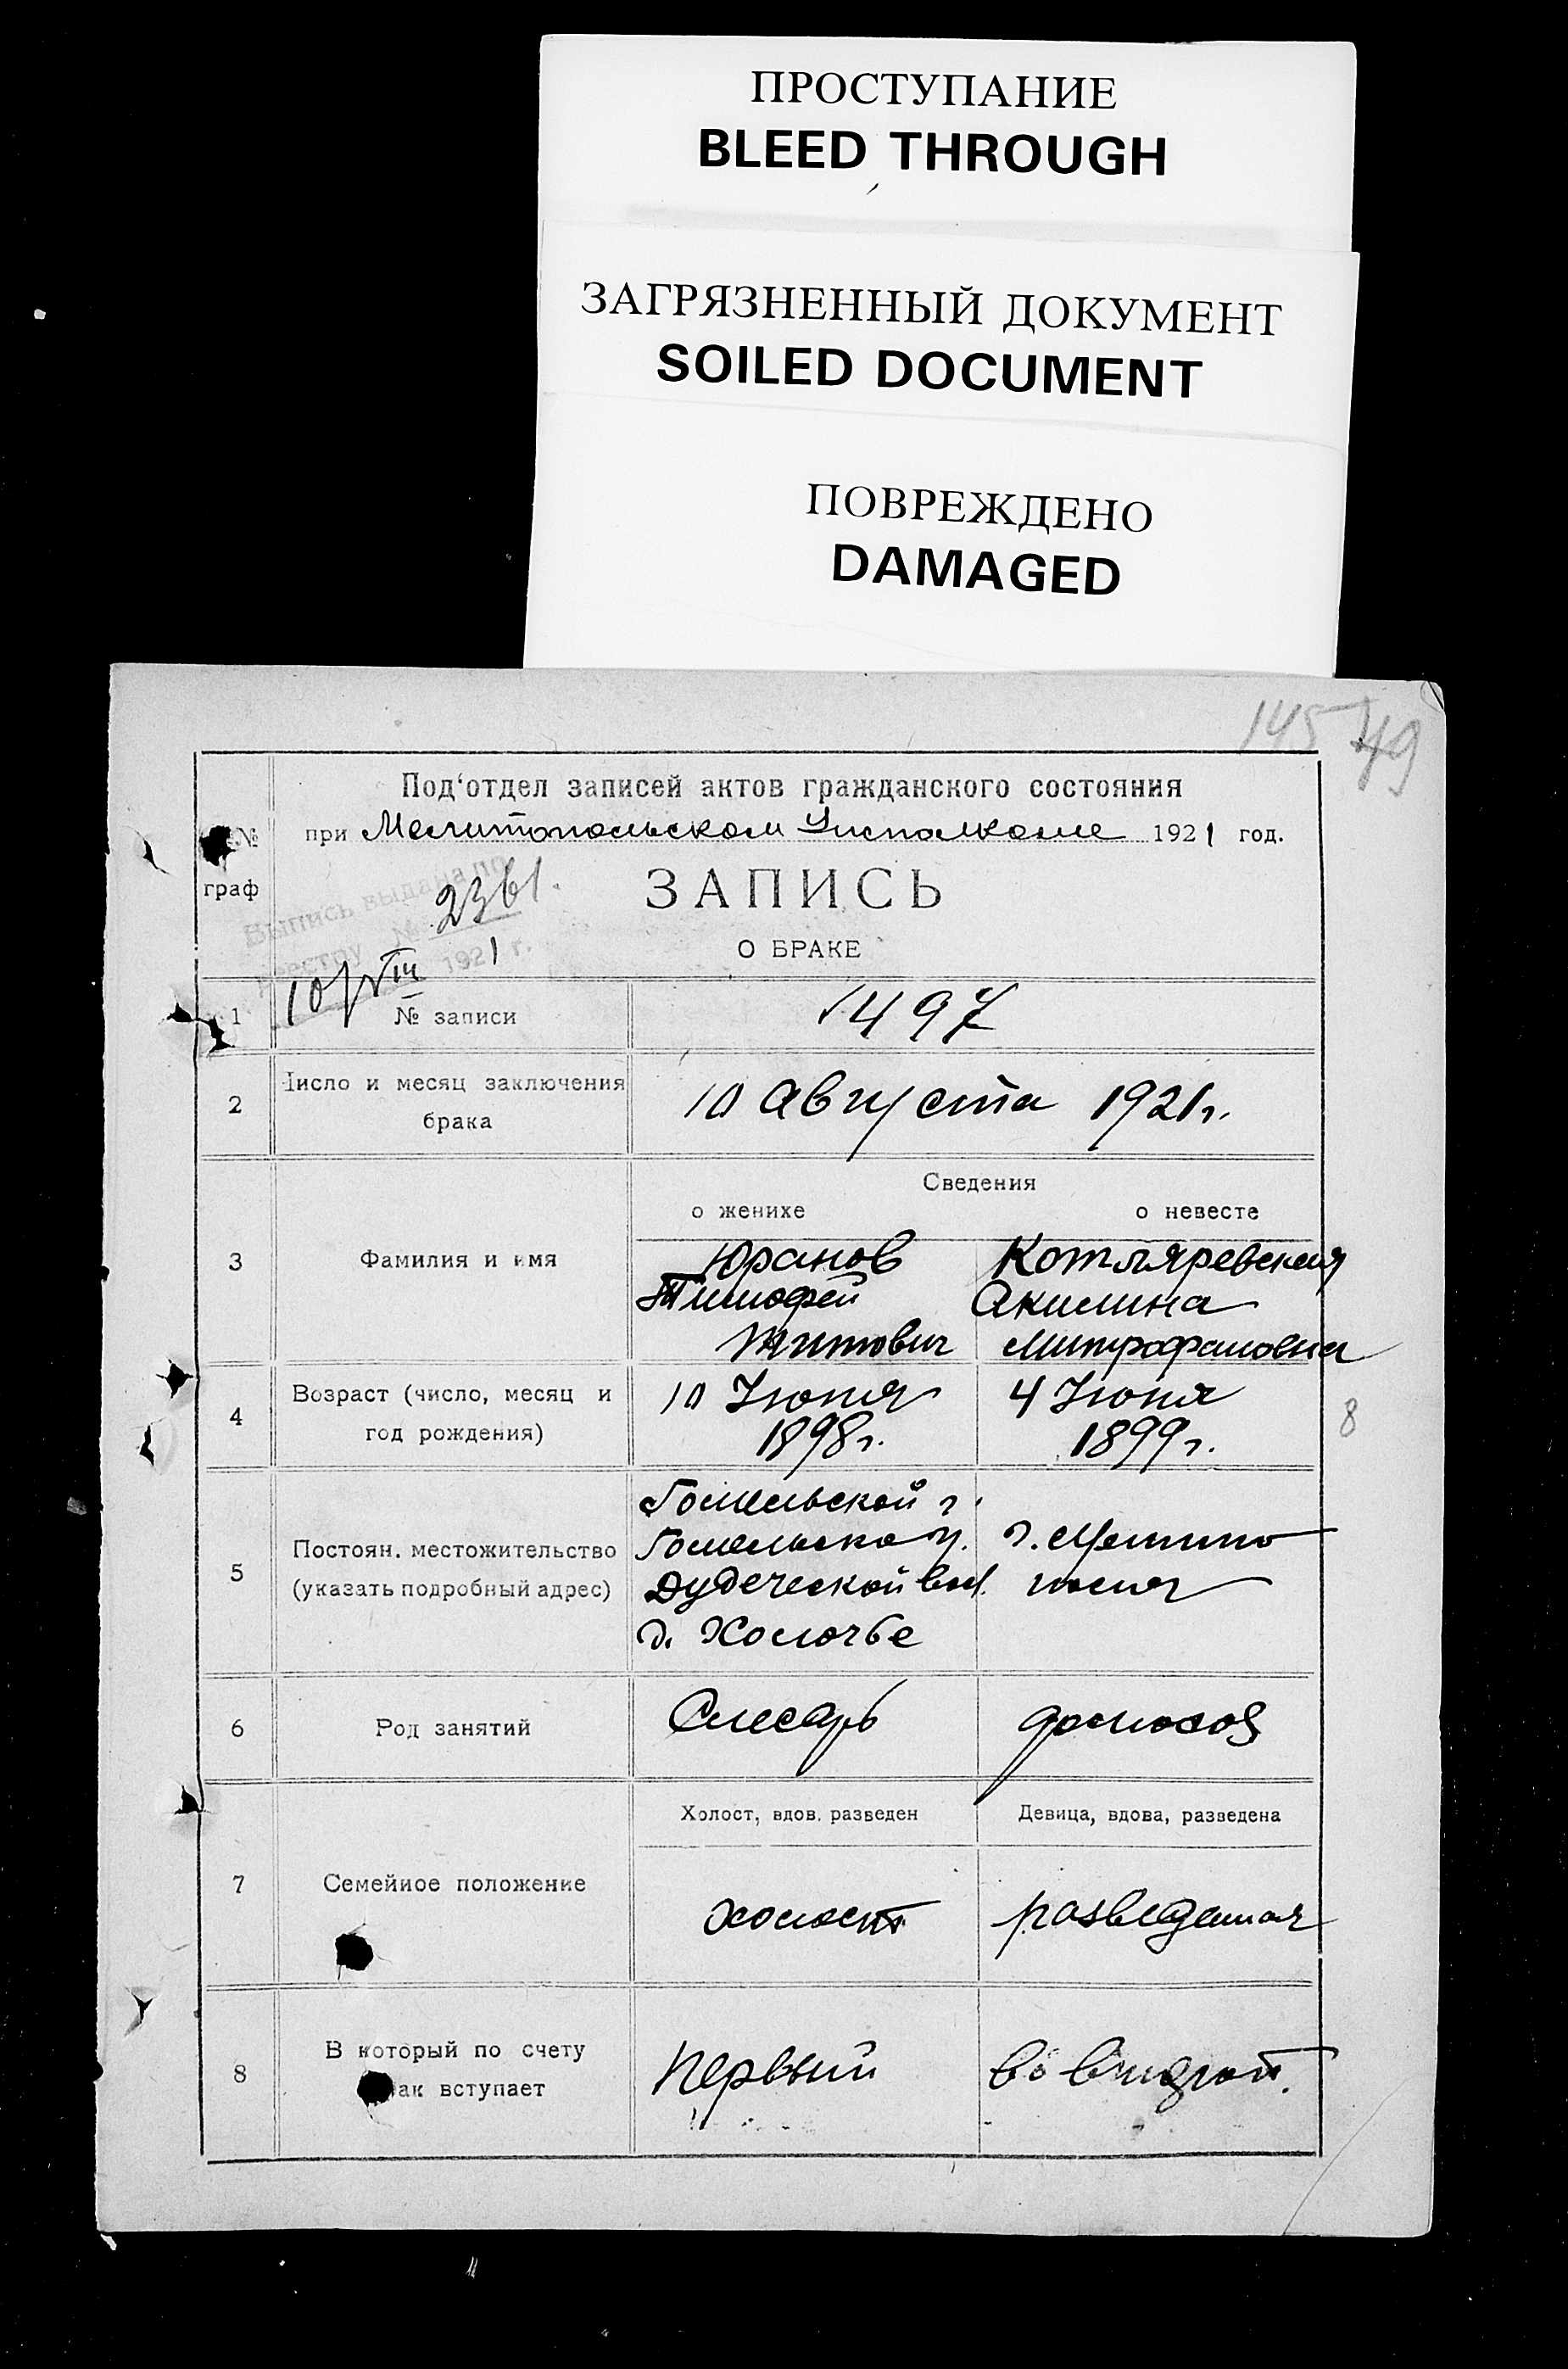 ПРОСТУПАНИЕ
BLEED THROUGH
ЗАГРЯЗНЕННЫЙ ДОКУМЕНТ
SOILED DOCUMENT
ПОВРЕЖДЕНО
DAMAGED
145 49
Под‘отдел записей актов гражданского состояния
№ при Мелитопольском Уисполкоме 1921 год.
граф
Выпись выдана по
реестру № 2361.
10/VIII 1921 г.
ЗАПИСЬ
О БРАКЕ
1 № записи 1497
2 Число и месяц заключения
брака
10 Августа 1921 г.
Сведения
о женихе о невесте
3 Фамилия и имя
Юранов Котляревская
Тимофей Акилина
Титович Митрофановна
4 Возраст (число, месяц и
год рождения)
10 Июня 4 Июня
1898 г. 1899 г.
8
5 Постоян. местожительство
(указать подробный адрес)
Гомельской г.
Гомельско у. г. Мелито
Дудеческой вол. поля
д. Холочье
6 Род занятий Слесарь домохоз
Холост, вдов. разведен Девица, вдова, разведена
7 Семейное положение
холост разведеная
8 В который по счету
ак вступает
Первый во второй.